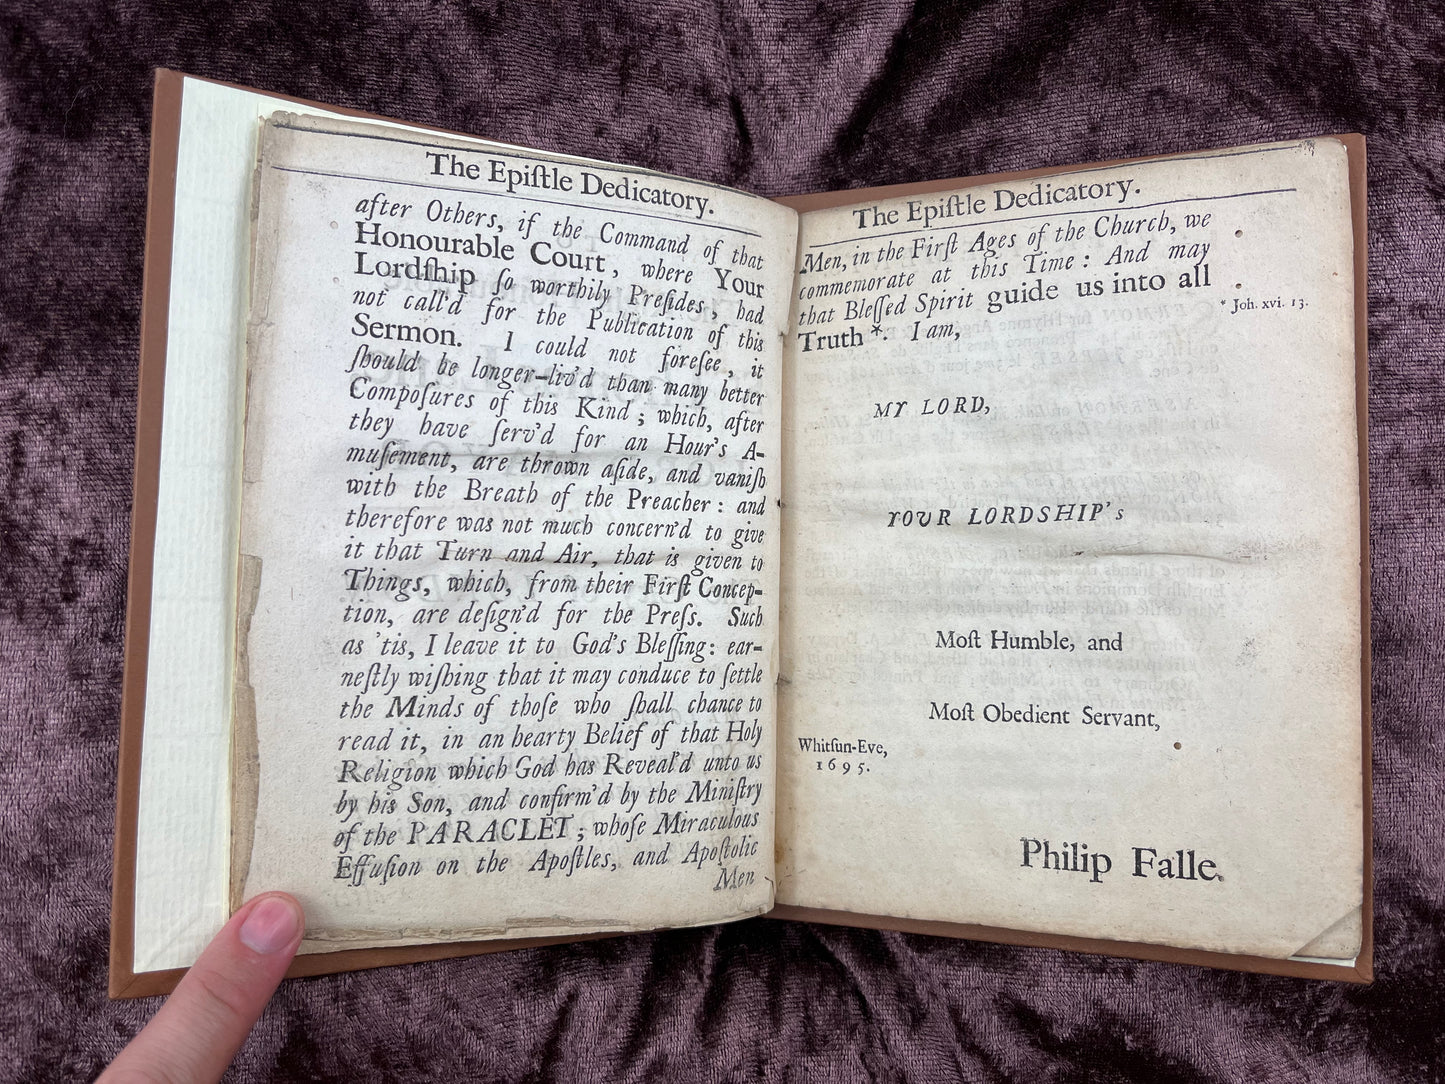 The Epiſtle Dedicatory.
after Others, if the Command of that
Honourable Court, where Your
Lordſhip ſo worthily Preſides, had
not call'd for the Publication of this
Sermon. I could not foreſee, it
ſhould be longer-liv'd than many better
Compoſures of this Kind; which, after
they have ſerv'd for an Hour's A-
muſement, are thrown aſide, and vaniſh
with the Breath of the Preacher: and
therefore was not much concern'd to give
it that Turn and Air, that is given to
Things, which, from their Firſt Concep-
tion, are deſign'd for the Preſs. Such
as 'tis, I leave it to God's Bleſſing: ear-
neſtly wiſhing that it may conduce to ſettle
the Minds of thoſe who ſhall chance to
read it, in an hearty Belief of that Holy
Religion which God has Reveal'd unto us
by his Son, and confirm'd by the Miniſtry
of the PARACLET; whoſe Miraculous
Effuſion on the Apoſtles, and Apoſtolic
Men
The Epiſtle Dedicatory.
Men, in the Firſt Ages of the Church, we
commemorate at this Time: And may
that Bleſſed Spirit guide us into all
Truth *. I am,
* Joh. xvi. 13.
MY LORD,
YOUR LORDSHIP's
Moſt Humble, and
Moſt Obedient Servant,
Whitſun-Eve,
1695.
Philip Falle.